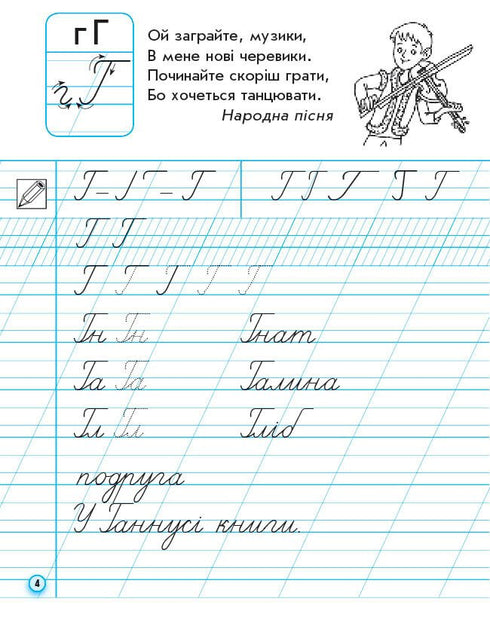 г Г
г Г
Ой заграйте, музики,
В мене нові черевики.
Починайте скоріш грати,
Бо хочеться танцювати.
Народна пісня
Г – Г Г – Г Г Г Г Г Г
Г Г
Г Г Г Г Г
Гн Гн Гнат
Га Га Галина
Гл Гл Гліб
подруга
У Ганнусі книги.
4